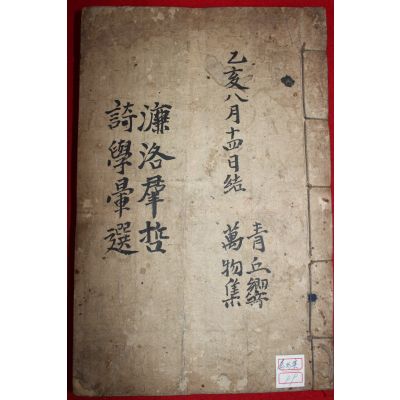 乙亥八月十四日結
青丘
萬物集
濂洛羣哲
學彙選